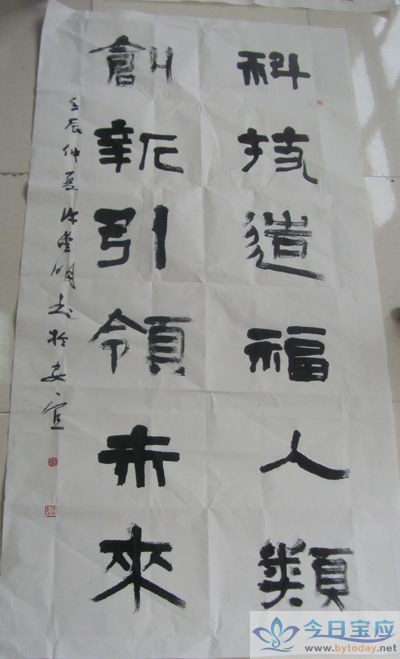 科技造福人類
創新引領未來
壬辰仲夏 明书於安宜
今日宝应
www.bytoday.net